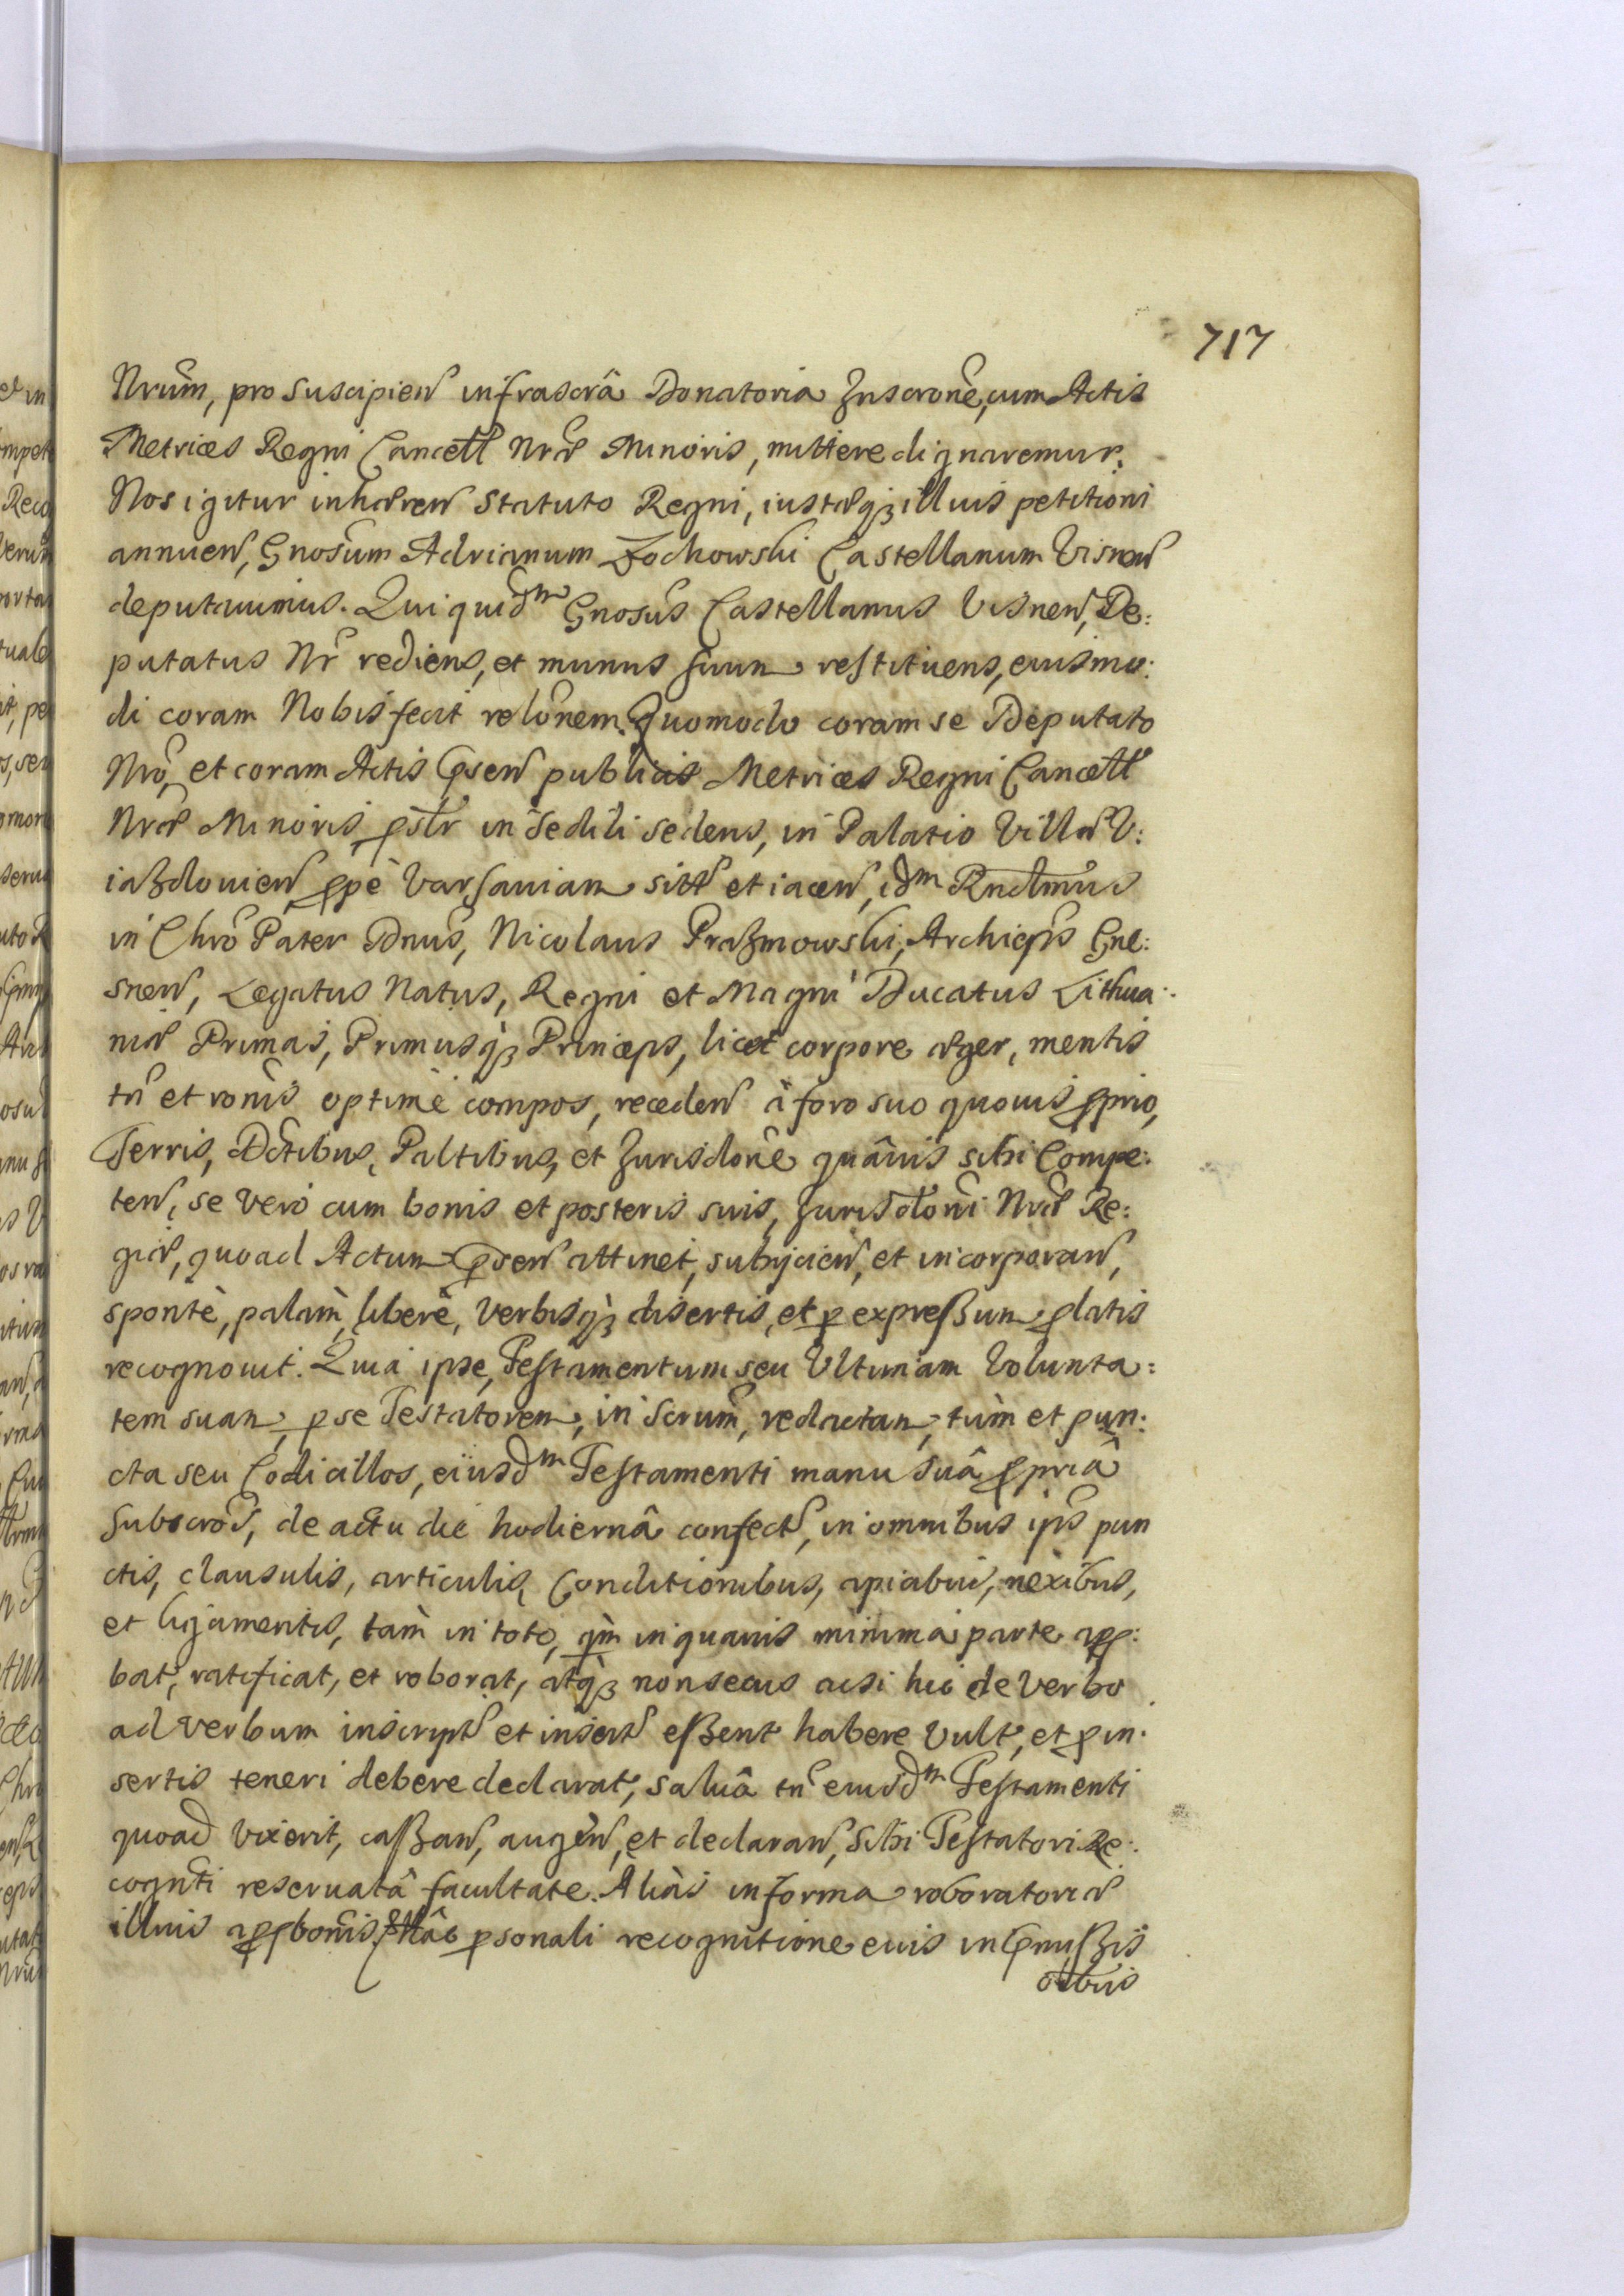 717
Nrum, pro suscipien infrascrâ Donatoria Inscrone, cum Actis
Metrices Regni Cancell Nræ Minoris, mittere dignaremur.
Nos igitur inhæren Statuto Regni, iustæq3 illius petitioni
annuen, Gnosum Adrianum Żochowski Castellanum Visnen
deputauimus. Qui quidm Gnosus Castellanus Visnen, De:
putatus Nr rediens, et munus suum restituens, eiusmo:
di coram Nobis fecit relonem. Quomodo coram se Deputato
Nro, et coram Actis psen publicis Metrices Regni Cancell
Nræ Minoris pslr in Sedili sedens, in Palatio Villæ V:
iazdouien ppè Varsauiam sitt et iacen, idm Rndmus
in Chro Pater Dnus, Nicolaus Prazmowski, Archieps Gne:
snen, Legatus Natus, Regni et Magni Ducatus Lithua:
niæ Primas, Primusq3 Princeps, licet corpore æger, mentis
tn et ronis optimè compos, receden à foro suo quouis pprio,
Terris, Dctibus, Paltibus, et Jurisdone quâuis sibi Compe:
ten, se vero cum bonis et posteris suis, Jurisdtoni Nræ Re:
giæ, quoad Actum psen attinet, subijcien, et incorporan,
spontè, palàm, liberè, verbisq3 disertis, et p expreßum platis
recognouit. Quia ipse, Testamentum seu Vltimam Volunta:
tem suam, p se Testatorem, in Scrum, redactam, tùm et pun:
cta seu Codicillos, eiusdm Testamenti manu suâ ppriâ
subscros, de actu die hodiernâ confect, in omnibus ips pun
ctis, clausulis, articulis, Conditionibus, apicibus, nexibus,
et ligamentis, tàm in toto, qm in quauis minima parte app:
bat, ratificat, et roborat, atq3 non secus acsi hic de verbo
ad verbum inscript et insert eßent habere vult, et p in:
sertis teneri debere declarat, saluâ tn eiusdm Testamenti
quoad vixerit, caßan, augen, et declaran, sibi Testatori Re:
cognti reseruatâ facultate. Aliàs in forma roboratoriæ
illius appbonis hâc psonali recognitione eius in pmißis
oibus